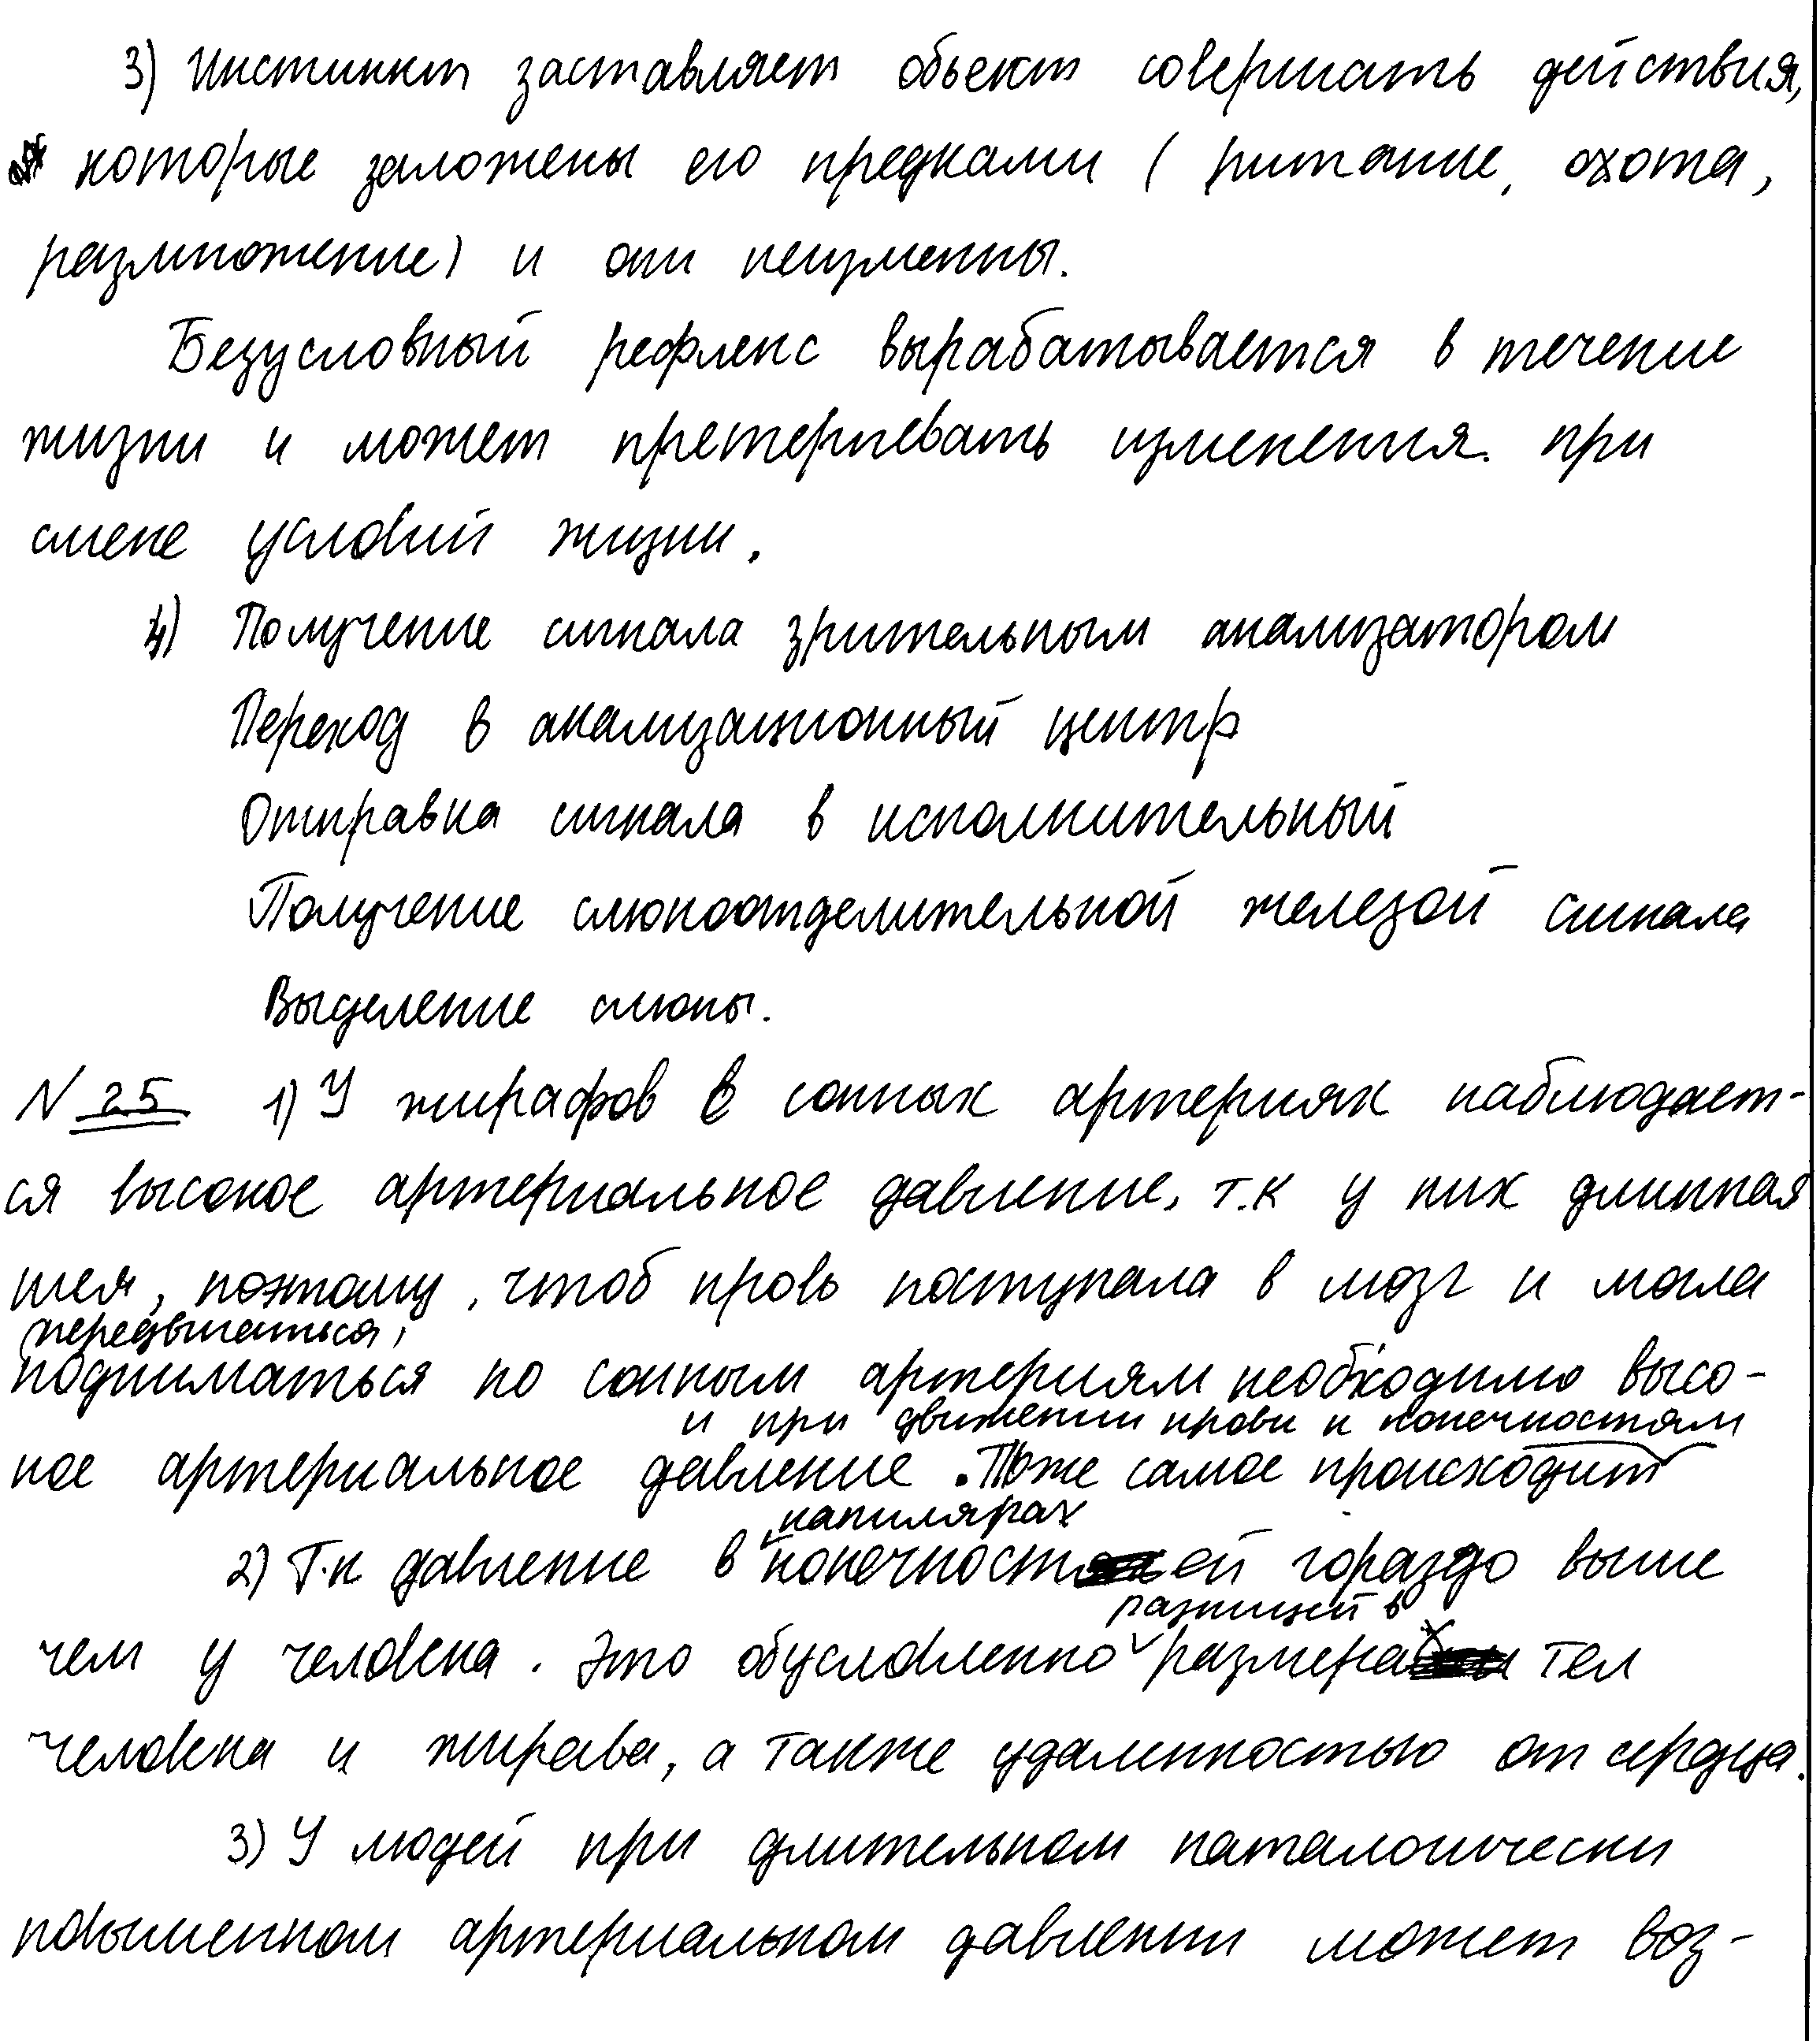 3) Инстинкт заставляет обьект совершать действия,
которые заложены его предками ( питание, охота,
размножение) и они неизменны.
Безусловный рефлекс вырабатывается в течение
жизни и может претерпевать изменения. при
смене условий жизни.
4) Получение сигнала зрительным анализатором
Переход в анализационный центр
Отправка сигнала в исполнительный
Получение слюноотделительной железой сигнала
Выделение слюны.
N 25 1) У жирафов в сонных артериях наблюдает-
ся высокое артериальное давление, т.к у них длинная
шея, поэтому, чтоб кровь поступала в мозг и могла
передвигаться,
подниматься по сонным артериям необходимо высо-
и при движении крови к конечностям
кое артериальное давление. Тоже самое происходит
капилярах
2) Т.к давление в конечностей гораздо выше
разницей в
чем у человека. Это обусловленно размерах тел
человека и жирава, а также удаленностью от сердца.
3) У людей при длительном паталогически
повышенном артериальном давлении может воз-